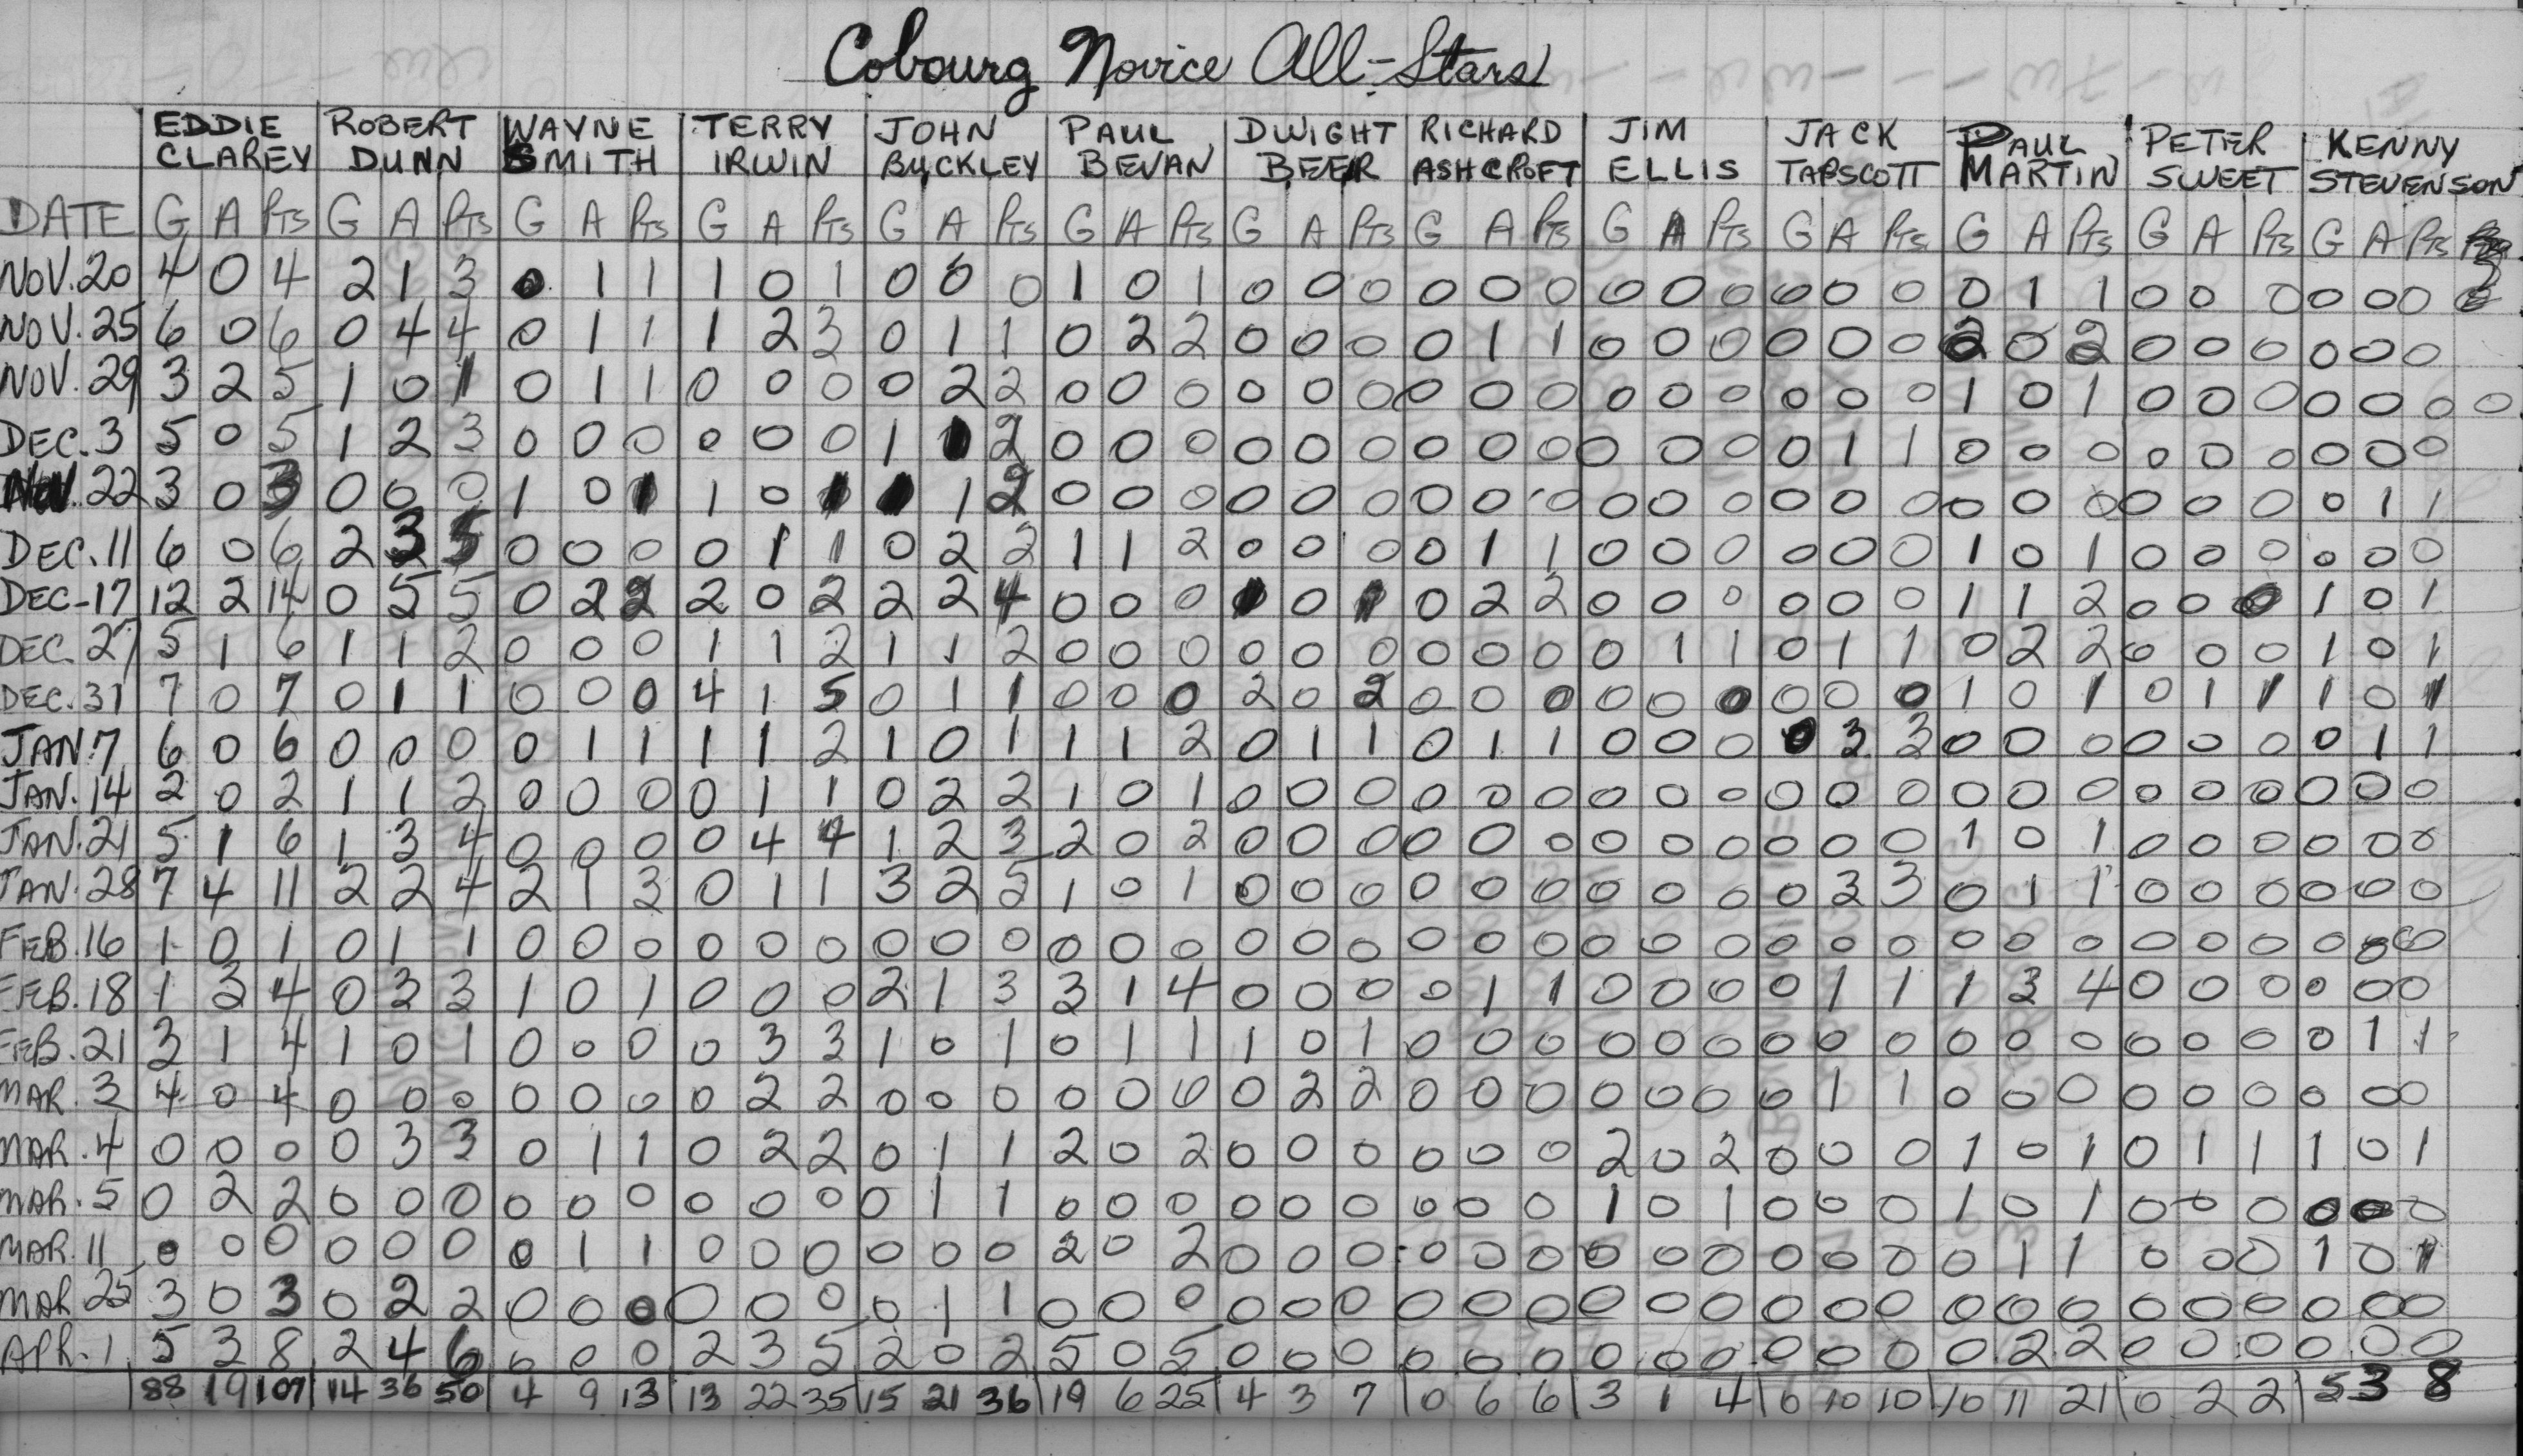 Cobourg Novice All-Stars
EDDIE ROBERT WAYNE TERRY JOHN PAUL DWIGHT RICHARD JIM JACK PAUL PETER KENNY
CLAREY DUNN SMITH IRWIN BUCKLEY BEVAN BEER ASHCROFT ELLIS TAPSCOTT MARTIN SWEET STEVENSON
DATE G A PTS G A PTS G A PTS G A PTS G A PTS G A PTS G A PTS G A PTS G A PTS G A PTS G A PTS G A PTS G A PTS
NOV. 20 4 0 4 2 1 3 0 1 1 1 0 1 0 0 0 1 0 1 0 0 0 0 0 0 0 0 0 0 0 0 0 1 1 0 0 0 0 0 0 0
NOV. 25 6 0 6 0 4 4 0 1 1 1 2 3 0 1 1 0 2 2 0 0 0 0 1 1 0 0 0 0 0 0 2 0 2 0 0 0 0 0 0
NOV. 29 3 2 5 1 0 1 0 1 1 0 0 0 0 2 2 0 0 0 0 0 0 0 0 0 0 0 0 0 0 0 1 0 1 0 0 0 0 0 0 0
DEC. 3 5 0 5 1 2 3 0 0 0 0 0 0 1 1 2 0 0 0 0 0 0 0 0 0 0 0 0 0 1 1 0 0 0 0 0 0 0 0 0
NOV. 22 3 0 3 0 0 0 1 0 1 1 0 1 1 1 2 0 0 0 0 0 0 0 0 0 0 0 0 0 0 0 0 0 0 0 0 0 0 1 1
DEC. 11 6 0 6 2 3 5 0 0 0 0 1 1 0 2 2 1 1 2 0 0 0 0 1 1 0 0 0 0 0 0 1 0 1 0 0 0 0 0 0
DEC-17 12 2 14 0 5 5 0 2 2 2 0 2 2 2 4 0 0 0 1 0 1 0 2 2 0 0 0 0 0 0 1 1 2 0 0 0 1 0 1
DEC. 27 5 1 6 1 1 2 0 0 0 1 1 2 1 1 2 0 0 0 0 0 0 0 0 0 0 1 1 0 1 1 0 2 2 0 0 0 1 0 1
DEC. 31 7 0 7 0 1 1 0 0 0 4 1 5 0 1 1 0 0 0 2 0 2 0 0 0 0 0 0 0 0 0 1 0 1 0 1 1 1 0 1
JAN. 7 6 0 6 0 0 0 0 1 1 1 1 2 1 0 1 1 1 2 0 1 1 0 1 1 0 0 0 0 3 3 0 0 0 0 0 0 0 1 1
JAN. 14 2 0 2 1 1 2 0 0 0 0 1 1 0 2 2 1 0 1 0 0 0 0 0 0 0 0 0 0 0 0 0 0 0 0 0 0 0 0 0
JAN. 21 5 1 6 1 3 4 0 0 0 0 4 4 1 2 3 2 0 2 0 0 0 0 0 0 0 0 0 0 0 0 1 0 1 0 0 0 0 0 0
JAN. 28 7 4 11 2 2 4 2 1 3 0 1 1 3 2 5 1 0 1 0 0 0 0 0 0 0 0 0 0 3 3 0 1 1 0 0 0 0 0 0
FEB. 16 1 0 1 0 1 1 0 0 0 0 0 0 0 0 0 0 0 0 0 0 0 0 0 0 0 0 0 0 0 0 0 0 0 0 0 0 0 0 0
FEB. 18 1 3 4 0 3 3 1 0 1 0 0 0 2 1 3 3 1 4 0 0 0 0 1 1 0 0 0 0 1 1 1 3 4 0 0 0 0 0 0
FEB. 21 3 1 4 1 0 1 0 0 0 0 3 3 1 0 1 0 1 1 1 0 1 0 0 0 0 0 0 0 0 0 0 0 0 0 0 0 0 1 1
MAR. 3 4 0 4 0 0 0 0 0 0 0 2 2 0 0 0 0 0 0 0 2 2 0 0 0 0 0 0 0 1 1 0 0 0 0 0 0 0 0 0
MAR. 4 0 0 0 0 3 3 0 1 1 0 2 2 0 1 1 2 0 2 0 0 0 0 0 0 2 0 2 0 0 0 1 0 1 0 1 1 1 0 1
MAR. 5 0 2 2 0 0 0 0 0 0 0 0 0 0 1 1 0 0 0 0 0 0 0 0 0 1 0 1 0 0 0 1 0 1 0 0 0 0 0 0
MAR. 11 0 0 0 0 0 0 0 1 1 0 0 0 0 0 0 2 0 2 0 0 0 0 0 0 0 0 0 0 0 0 0 1 1 0 0 0 1 0 1
MAR. 25 3 0 3 0 2 2 0 0 0 0 0 0 0 1 1 0 0 0 0 0 0 0 0 0 0 0 0 0 0 0 0 0 0 0 0 0 0 0 0
APR. 1 5 3 8 2 4 6 0 0 0 2 3 5 2 0 2 5 0 5 0 0 0 0 0 0 0 0 0 0 0 0 0 2 2 0 0 0 0 0 0
88 19 107 14 36 50 4 9 13 13 22 35 15 21 36 19 6 25 4 3 7 0 6 6 3 1 4 0 10 10 10 11 21 0 2 2 5 3 8